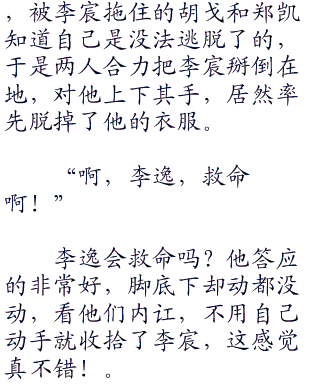 ，被李宸拖住的胡戈和郑凯
知道自己是没法逃脱了的，
于是两人合力把李宸掰倒在
地，对他上下其手，居然率
先脱掉了他的衣服。
“啊，李逸，救命
啊！”
李逸会救命吗？他答应
的非常好，脚底下却动都没
动，看他们内讧，不用自己
动手就收拾了李宸，这感觉
真不错！。